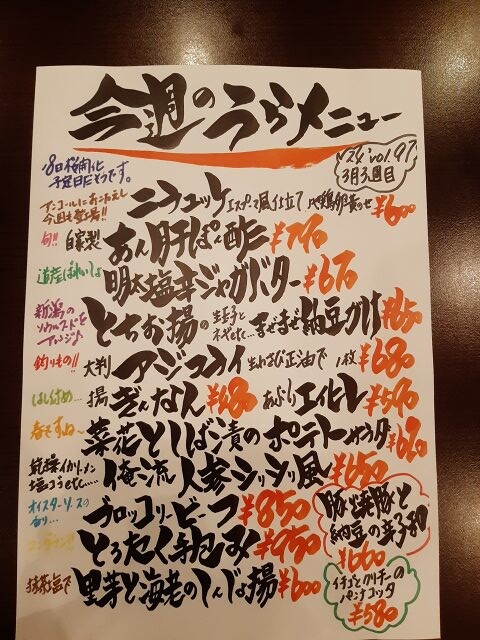 今週のうらメニュー
'24 vol.97
3月3週目
18日桜開花
予定日だそうです。
アンコールにおこたえし
今週も登場!!
ニラユッケ エスプーマ風仕立て ¥600
旬!! 自家製 あん肝ぽん酢 ¥790
道産ばれいしょ 明太塩辛ジャガバター ¥670
新潟の
ソウルフードを
アレンジ♪
とちお揚の 生玉子と
ネギと… まぜまぜ納豆グツ ¥650
釣りもの!! 大判 アジフライ 生わさび正油で 1枚 ¥680
はし休め… 揚ぎんなん ¥480 あぶりエイヒレ ¥590
春ですね〜 菜花としば漬のポテトサラダ ¥620
乾燥イカ、ラーメン
塩コンブなどで… 俺流人参シリシリ風 ¥650
オイスターソースの
香り… ブロッコリービーフ ¥850
エンディング! とろたく手包み ¥950
抹茶塩で 里芋と海老のしんじょ揚 ¥600
豚と焼豚と
納豆の辛子和
¥660
イチゴとクリチーの
パンナコッタ
¥580